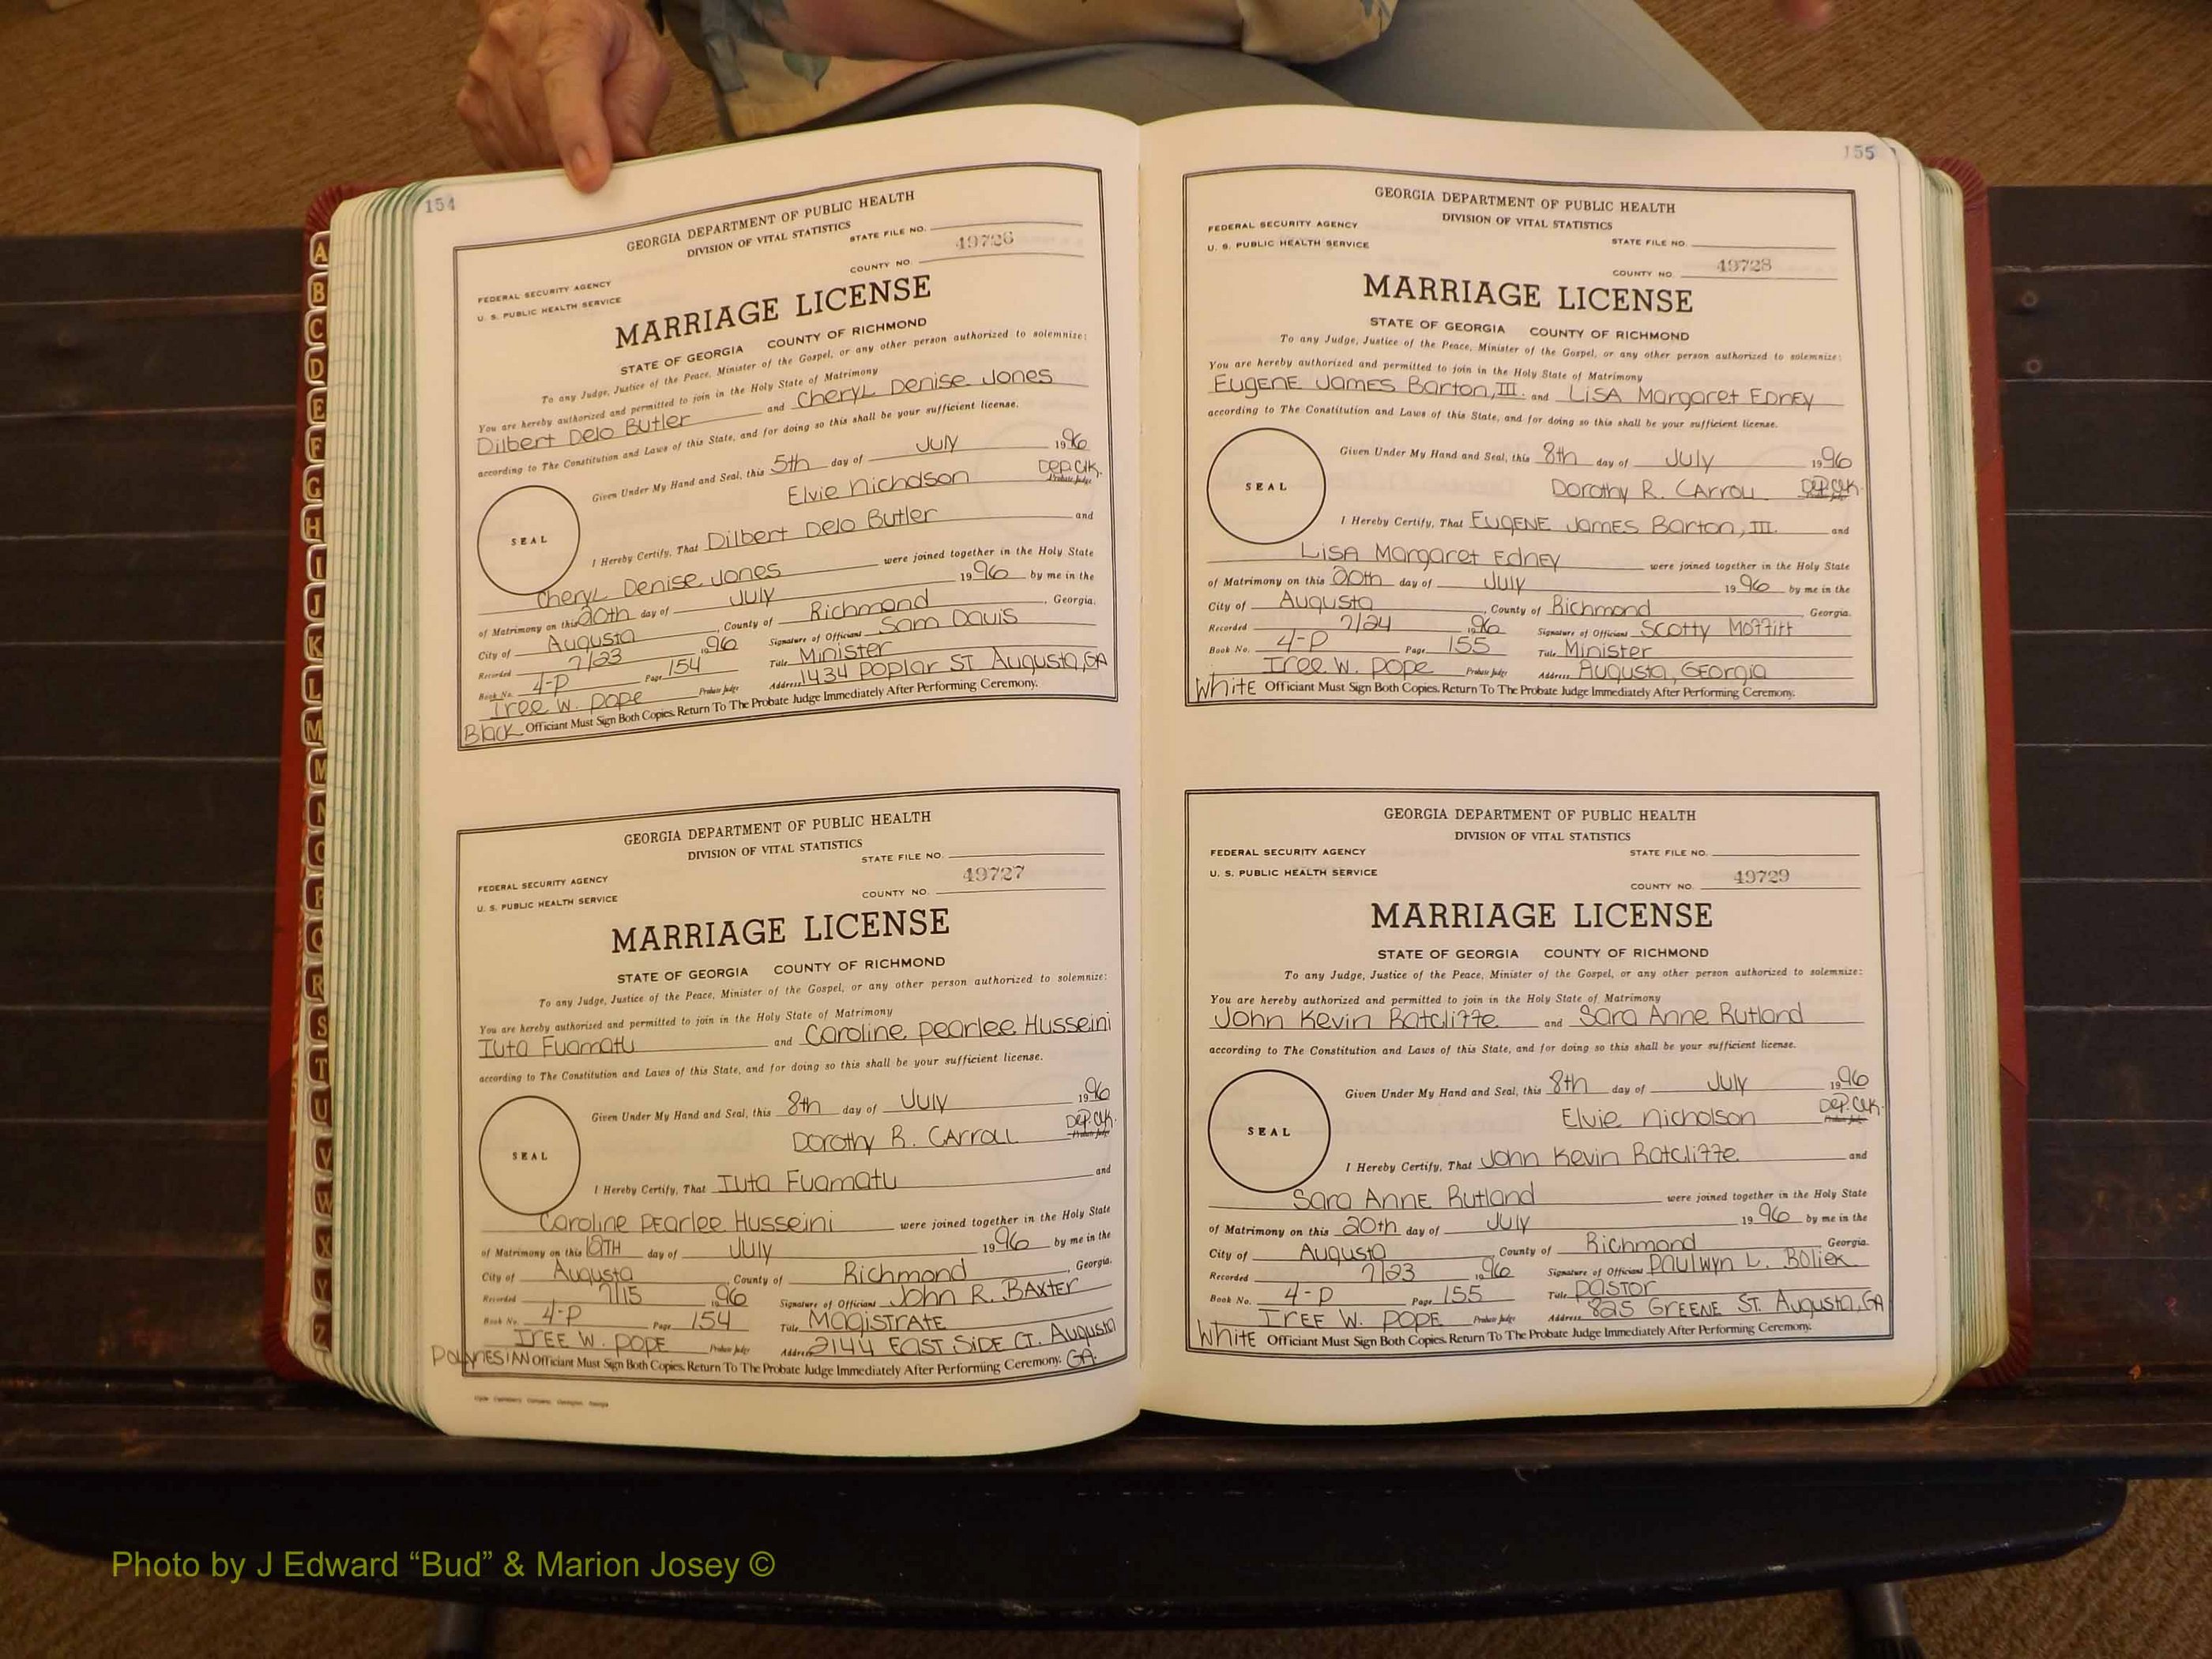 154
GEORGIA DEPARTMENT OF PUBLIC HEALTH
DIVISION OF VITAL STATISTICS
STATE FILE NO.
49726
COUNTY NO.
FEDERAL SECURITY AGENCY
U. S. PUBLIC HEALTH SERVICE
MARRIAGE LICENSE
STATE OF GEORGIA COUNTY OF RICHMOND
To any Judge, Justice of the Peace, Minister of the Gospel, or any other person authorized to solemnize:
You are hereby authorized and permitted to join in the Holy State of Matrimony
Dilbert Delo Butler and Cheryl Denise Jones
according to The Constitution and Laws of this State, and for doing so this shall be your sufficient license.
Given Under My Hand and Seal, this 5th day of July 1996
Elvie Nicholson Dep. Clk. Probate Judge
SEAL
I Hereby Certify, That Dilbert Delo Butler and
Cheryl Denise Jones were joined together in the Holy State
of Matrimony on this 20th day of July 1996 by me in the
City of Augusta, County of Richmond, Georgia.
Recorded 7/23 1996 Signature of Officiant Sam Davis
Book No. 4-P Page 154 Title Minister
Iree W. Pope Probate Judge Address 1434 Poplar St Augusta, GA
Black Officiant Must Sign Both Copies. Return To The Probate Judge Immediately After Performing Ceremony.
GEORGIA DEPARTMENT OF PUBLIC HEALTH
DIVISION OF VITAL STATISTICS
STATE FILE NO.
49727
COUNTY NO.
FEDERAL SECURITY AGENCY
U. S. PUBLIC HEALTH SERVICE
MARRIAGE LICENSE
STATE OF GEORGIA COUNTY OF RICHMOND
To any Judge, Justice of the Peace, Minister of the Gospel, or any other person authorized to solemnize:
You are hereby authorized and permitted to join in the Holy State of Matrimony
Iuta Fuamatu and Caroline Pearlee Husseini
according to The Constitution and Laws of this State, and for doing so this shall be your sufficient license.
Given Under My Hand and Seal, this 8th day of July 1996
Dorothy R. Carroll Dep. Clk. Probate Judge
SEAL
I Hereby Certify, That Iuta Fuamatu and
Caroline Pearlee Husseini were joined together in the Holy State
of Matrimony on this day of July 1996 by me in the
City of Augusta, County of Richmond, Georgia.
Recorded 7/15 1996 Signature of Officiant John R. Baxter
Book No. 4-P Page 154 Title Magistrate
Iree W. Pope Probate Judge Address 2144 East Side Ct. Augusta
Polynesian Officiant Must Sign Both Copies. Return To The Probate Judge Immediately After Performing Ceremony. GA.
155
GEORGIA DEPARTMENT OF PUBLIC HEALTH
DIVISION OF VITAL STATISTICS
FEDERAL SECURITY AGENCY
U. S. PUBLIC HEALTH SERVICE
STATE FILE NO.
49728
COUNTY NO.
MARRIAGE LICENSE
STATE OF GEORGIA COUNTY OF RICHMOND
To any Judge, Justice of the Peace, Minister of the Gospel, or any other person authorized to solemnize:
You are hereby authorized and permitted to join in the Holy State of Matrimony
Eugene James Barton, III. and Lisa Margaret Edney
according to The Constitution and Laws of this State, and for doing so this shall be your sufficient license.
Given Under My Hand and Seal, this 8th day of July 1996
Dorothy R. Carroll Dep. Clk.
SEAL
I Hereby Certify, That Eugene James Barton, III. and
Lisa Margaret Edney were joined together in the Holy State
of Matrimony on this 20th day of July 1996 by me in the
City of Augusta, County of Richmond, Georgia.
Recorded 7/24 1996 Signature of Officiant Scotty Moffitt
Book No. 4-P Page 155 Title Minister
Iree W. Pope Probate Judge Address Augusta, Georgia
White Officiant Must Sign Both Copies. Return To The Probate Judge Immediately After Performing Ceremony.
GEORGIA DEPARTMENT OF PUBLIC HEALTH
DIVISION OF VITAL STATISTICS
FEDERAL SECURITY AGENCY
U. S. PUBLIC HEALTH SERVICE
STATE FILE NO.
49729
COUNTY NO.
MARRIAGE LICENSE
STATE OF GEORGIA COUNTY OF RICHMOND
To any Judge, Justice of the Peace, Minister of the Gospel, or any other person authorized to solemnize:
You are hereby authorized and permitted to join in the Holy State of Matrimony
John Kevin Ratcliffe and Sara Anne Rutland
according to The Constitution and Laws of this State, and for doing so this shall be your sufficient license.
Given Under My Hand and Seal, this 8th day of July 1996
Elvie Nicholson Dep. Clk. Probate Judge
SEAL
I Hereby Certify, That John Kevin Ratcliffe and
Sara Anne Rutland were joined together in the Holy State
of Matrimony on this 20th day of July 1996 by me in the
City of Augusta, County of Richmond, Georgia.
Recorded 7/23 1996 Signature of Officiant Paulwyn L. Boliek
Book No. 4-P Page 155 Title Pastor
Iree W. Pope Probate Judge Address 825 Greene St. Augusta, GA
White Officiant Must Sign Both Copies. Return To The Probate Judge Immediately After Performing Ceremony.
A
B
C
D
E
F
G
H
I
J
K
L
M
M
N
O
P
Q
R
S
T
U
V
W
X
Y
Z
Photo by J Edward “Bud” & Marion Josey ©